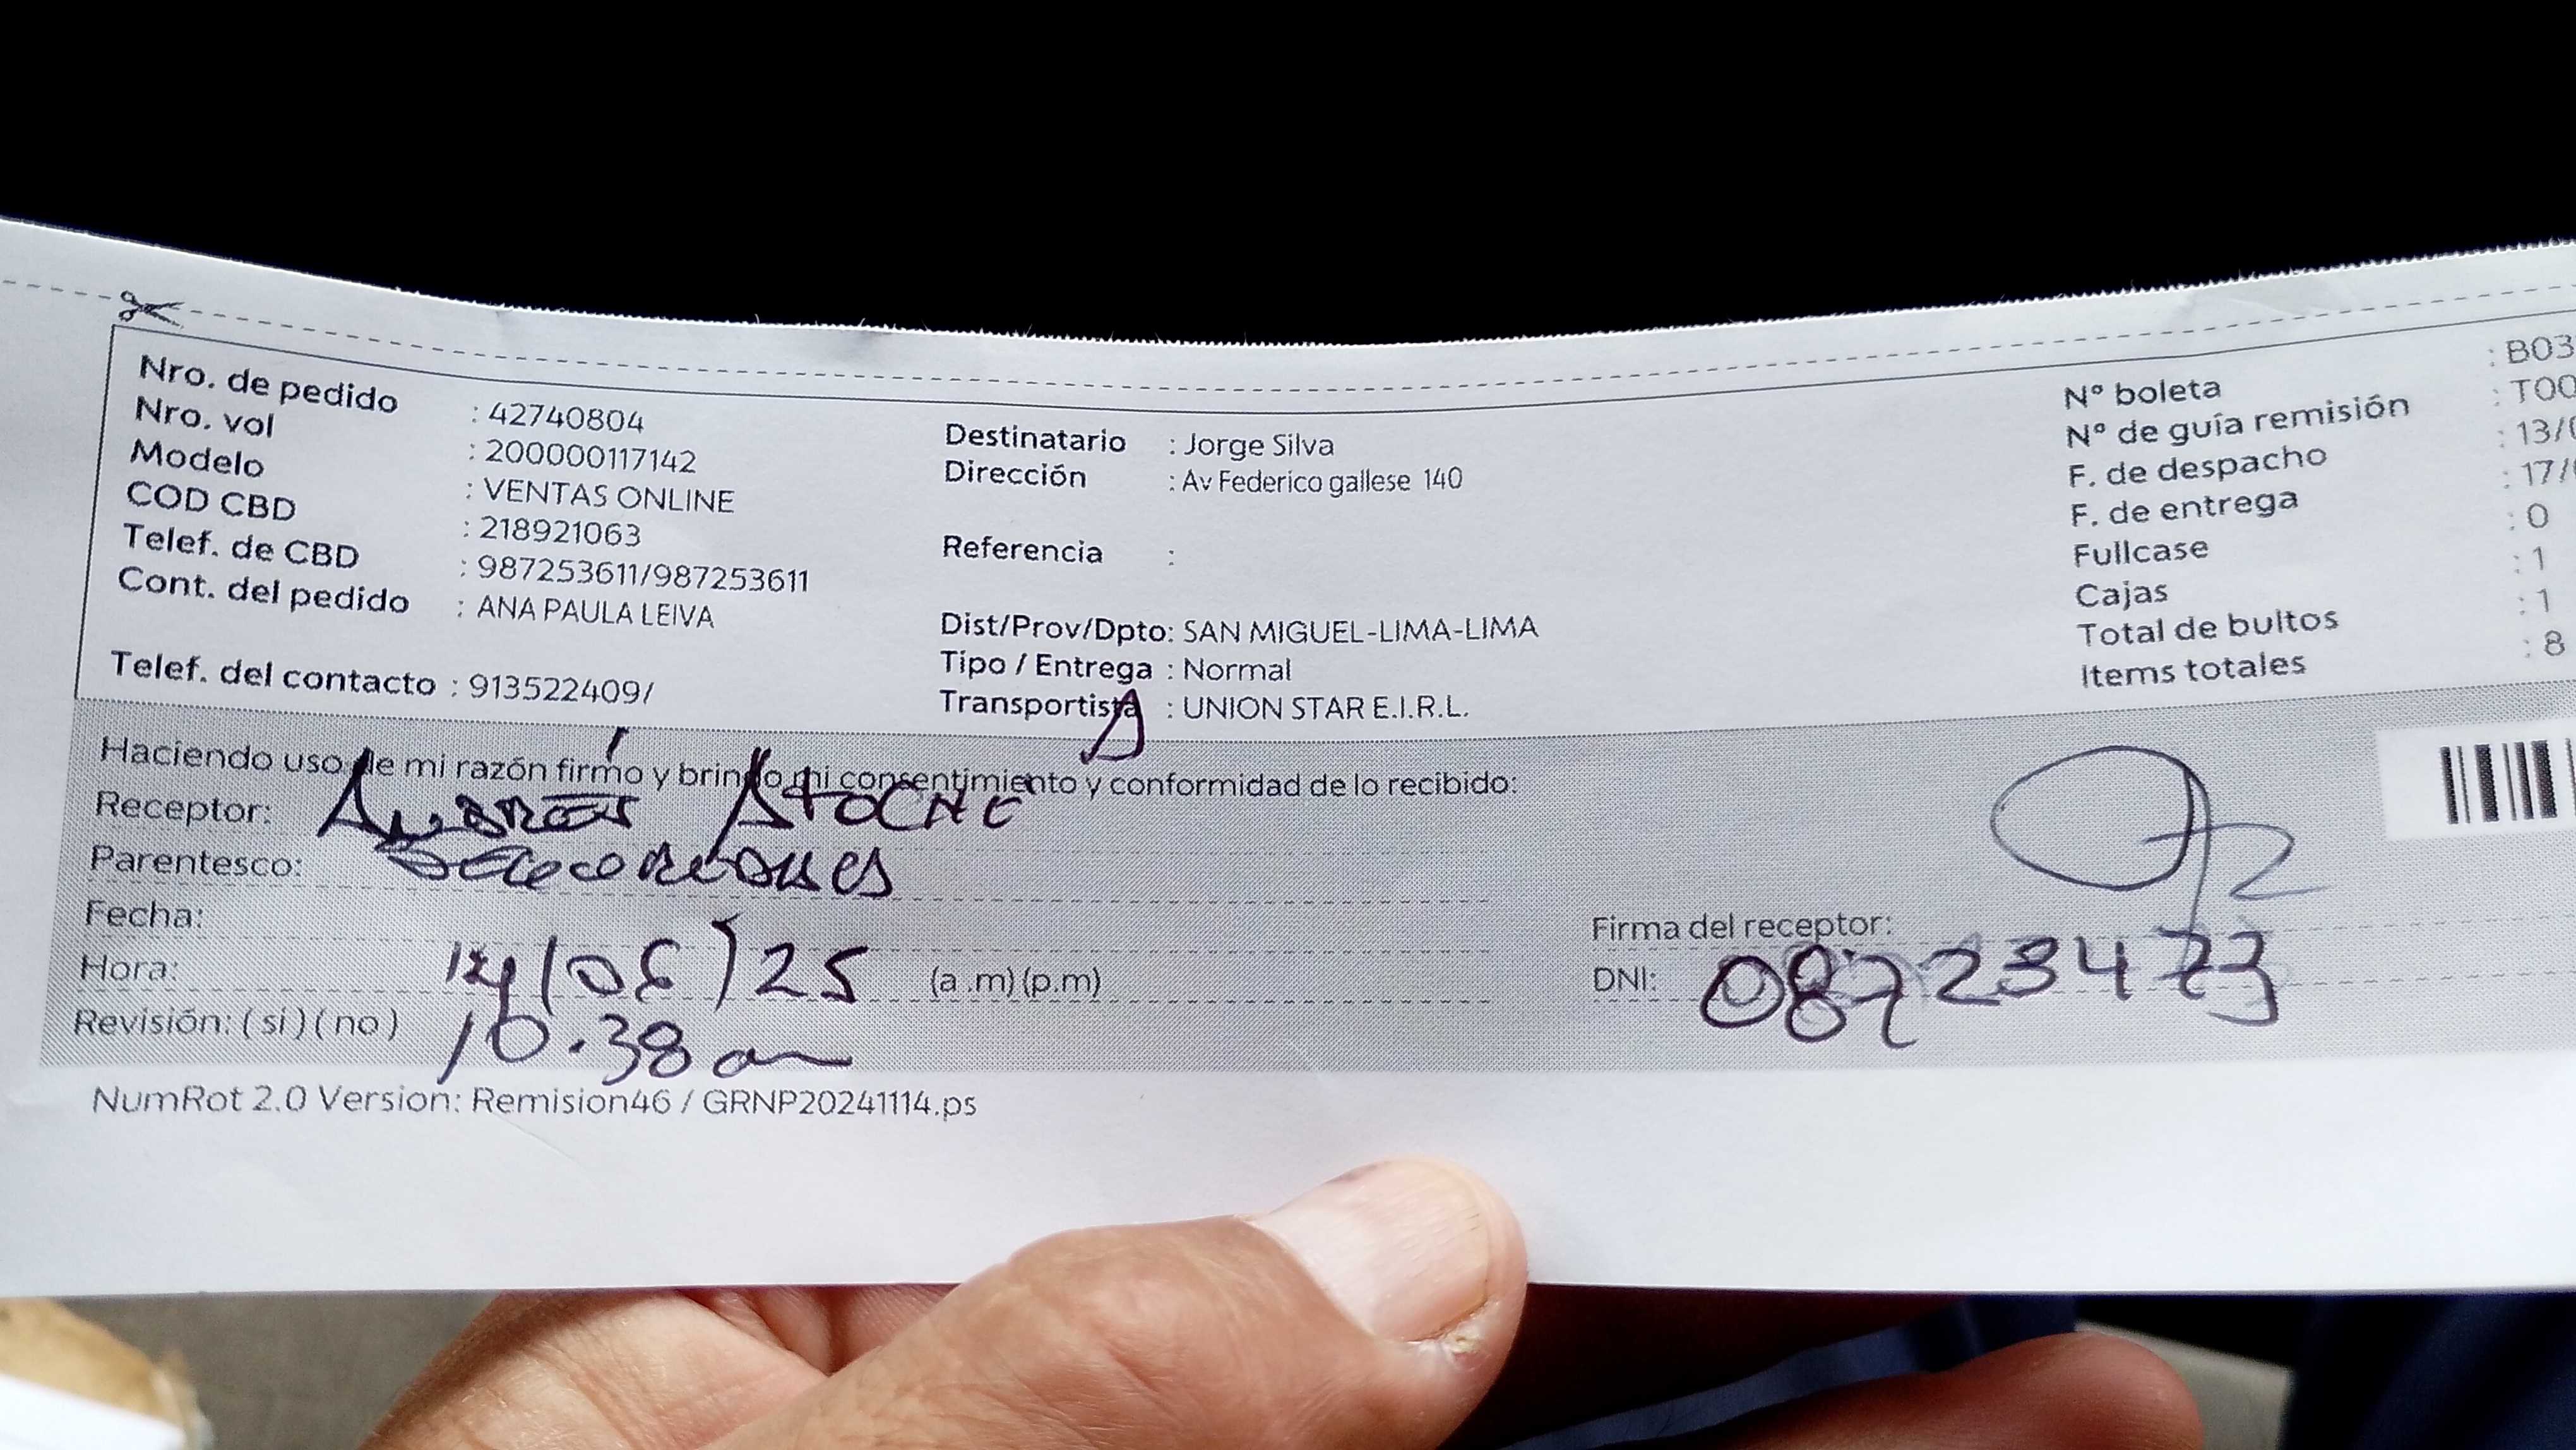 Nro. de pedido : 42740804
Nro. vol : 200000117142
Modelo : VENTAS ONLINE
COD CBD : 218921063
Telef. de CBD : 987253611/987253611
Cont. del pedido : ANA PAULA LEIVA
Telef. del contacto : 913522409/
Destinatario : Jorge Silva
Dirección : Av Federico gallese 140
Referencia :
Dist/Prov/Dpto: SAN MIGUEL-LIMA-LIMA
Tipo / Entrega : Normal
Transportista : UNION STAR E.I.R.L.
N° boleta : B03
N° de guía remisión : T00
F. de despacho : 13/0
F. de entrega : 17/
Fullcase : 0
Cajas : 1
Total de bultos : 1
Items totales : 8
Haciendo uso de mi razón firmo y brindo mi consentimiento y conformidad de lo recibido:
Receptor: Atoche
Parentesco:
Fecha:
Hora: 14/05/25 (a .m) (p.m)
Revisión: ( si ) ( no ) 10.38 am
Firma del receptor:
DNI: 08723473
NumRot 2.0 Version: Remision46 / GRNP20241114.ps